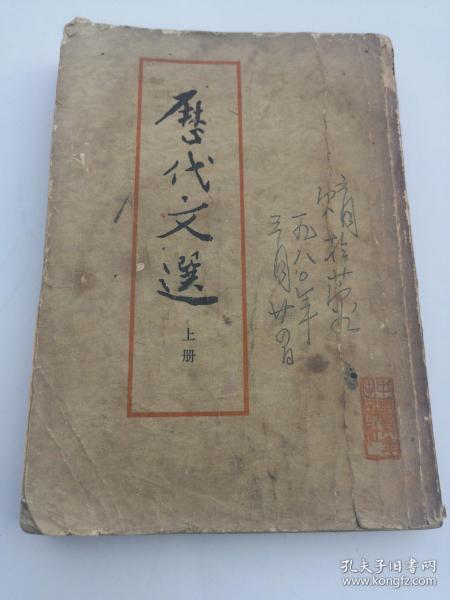 歷代文選
上册
一九八〇年
三月廿四日
孔夫子旧书网
www.kongfz.com